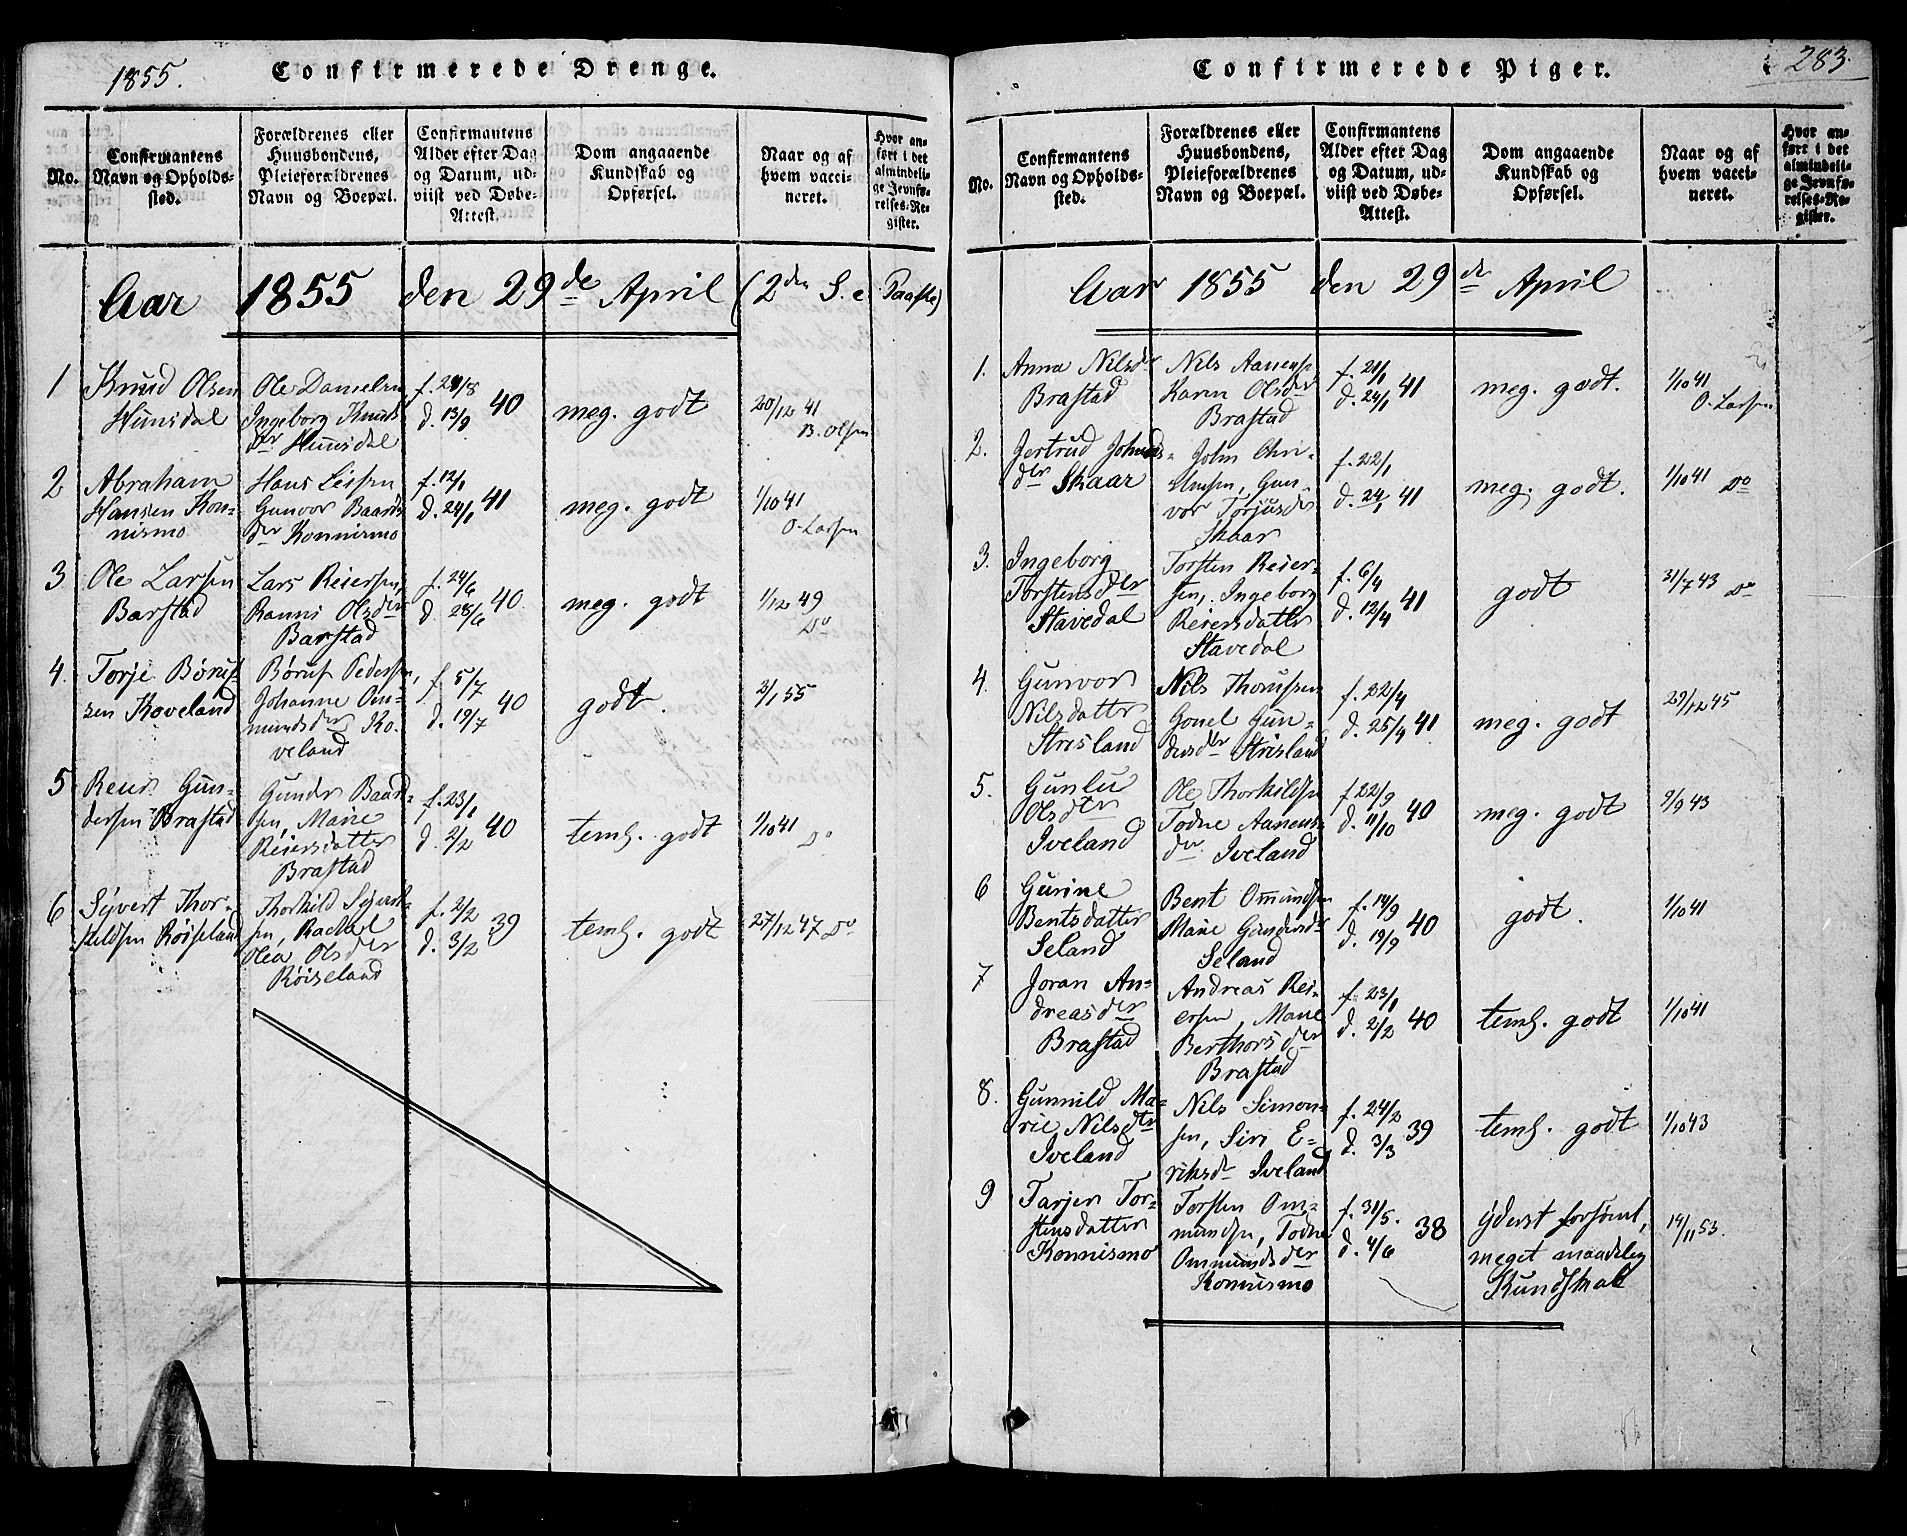 1855.
Confirmerede Drenge.
No.
Confirmantens Navn og Opholds-sted.
Forældrenes eller Huusbondens, Pleieforældrenes Navn og Boepæl.
Confirmantens Alder efter Dag og Datum, ud-viist ved Døbe-Attest.
Dom angaaende Kundskab og Opførsel.
Naar og af hvem vacci-neret.
Hvor an-ført i det almindeli-ge Jevnfø-relses-Re-gister.
Aar 1855 den 29de April (2den S. e. Paaske)
1
Knud Olsen
Hunsdal
Ole Danielsen
Ingeborg Knuds
dr Hunsdal
f. 29/8
d. 13/9 40
meg. godt
20/12 41
B. Olsen
2
Abraham
Hansen Kon-
nismo
Hans Leifsen
Gunvor Baards
dr Konnismo
f. 12/1
d. 24/1 41
meg. godt
1/10 41
O. Larsen
3
Ole Larsen
Barstad
Lars Reiersen,
Ranni Olsder
Barstad
f. 24/6
d. 28/6 40.
meg. godt
1/12 49
Do
4.
Torje Børuf-
sen Koveland
Børuf Pedersen,
Johanne Om-
mundsder Ko-
veland
f. 5/7
d. 19/7 40
godt.
3/1 55
5
Reier Gun-
dersen Brastad
Gunder Baard-
sen, Marie
Reiersdatter
Brastad
f. 23/1
d. 2/2 40
teml. godt
1/10 41
Do
6
Syvert Thor-
kildsen Røiseland
Thorkild Syvert-
sen, Rachel
Olea Olsder
Røiseland
f. 2/2
d. 3/2 39
teml. godt
27/12 47 Do
Confirmerede Piger.
283.
No.
Confirmantens Navn og Opholds-sted.
Forældrenes eller Huusbondens, Pleieforældrenes Navn og Boepæl.
Confirmantens Alder efter Dag og Datum, ud-viist ved Døbe-Attest.
Dom angaaende Kundskab og Opførsel.
Naar og af hvem vacci-neret.
Hvor an-ført i det almindeli-ge Jevnfø-relses-Re-gister.
Aar 1855 den 29de April
1.
Anna Nilsdr
Brastad
Nils Aanens.
Karen Olsdr
Brastad
f. 21/1
d. 24/1 41
meg. godt.
1/10 41
O. Larsen
2.
Gertrud Johnds-
der Skaar
John Chri-
stensen, Gun-
vor Torjusdr
Skaar
f. 22/1
d. 24/1 41
meg. godt.
1/10 41 Do
3.
Ingeborg
Torstensder
Stavedal
Torsten Reier-
sen, Ingeborg
Reiersdatter
Stavedal
f. 6/4
d. 12/4 41
godt
31/7 43 Do
4.
Gunvor
Nilsdatter
Strisland
Nils Thorufsen
Gonel Gun-
dersder Strisland
f. 22/4
d. 25/4 41
meg. godt
29/12 45
5.
Gunlu
Olsdtr
Iveland
Ole Thorkildsen
Todne Aanens-
dr Iveland
f 22/9
d. 11/10 40
meg. godt
9/9 43
6
Gurine
Bentsdatter
Seland
Bent Ommundsen
Marie Gundersdr
Seland
f. 14/9
d. 19/9 40
godt.
1/10 41
7
Joran An-
dreasder
Brastad
Andreas Rei-
ersen, Marie
Berthorsder
Brastad
f. 23/1
d. 2/2 40
teml. godt
1/10 41
8.
Gunnild Ma-
rie Nilsdtr
Iveland
Nils Simon-
sen, Siri E-
riksdr Iveland
f. 24/2
d. 3/3 39
teml. godt
1/10 43
9
Tarjer Tor-
stensdatter
Konnismo
Torsten Om-
mundsen, Todne
Ommundsder
Konnismo
f. 31/5.
d. 4/6 38
yderst forsømt,
meget maadelig
Kundskab
14/11 53.